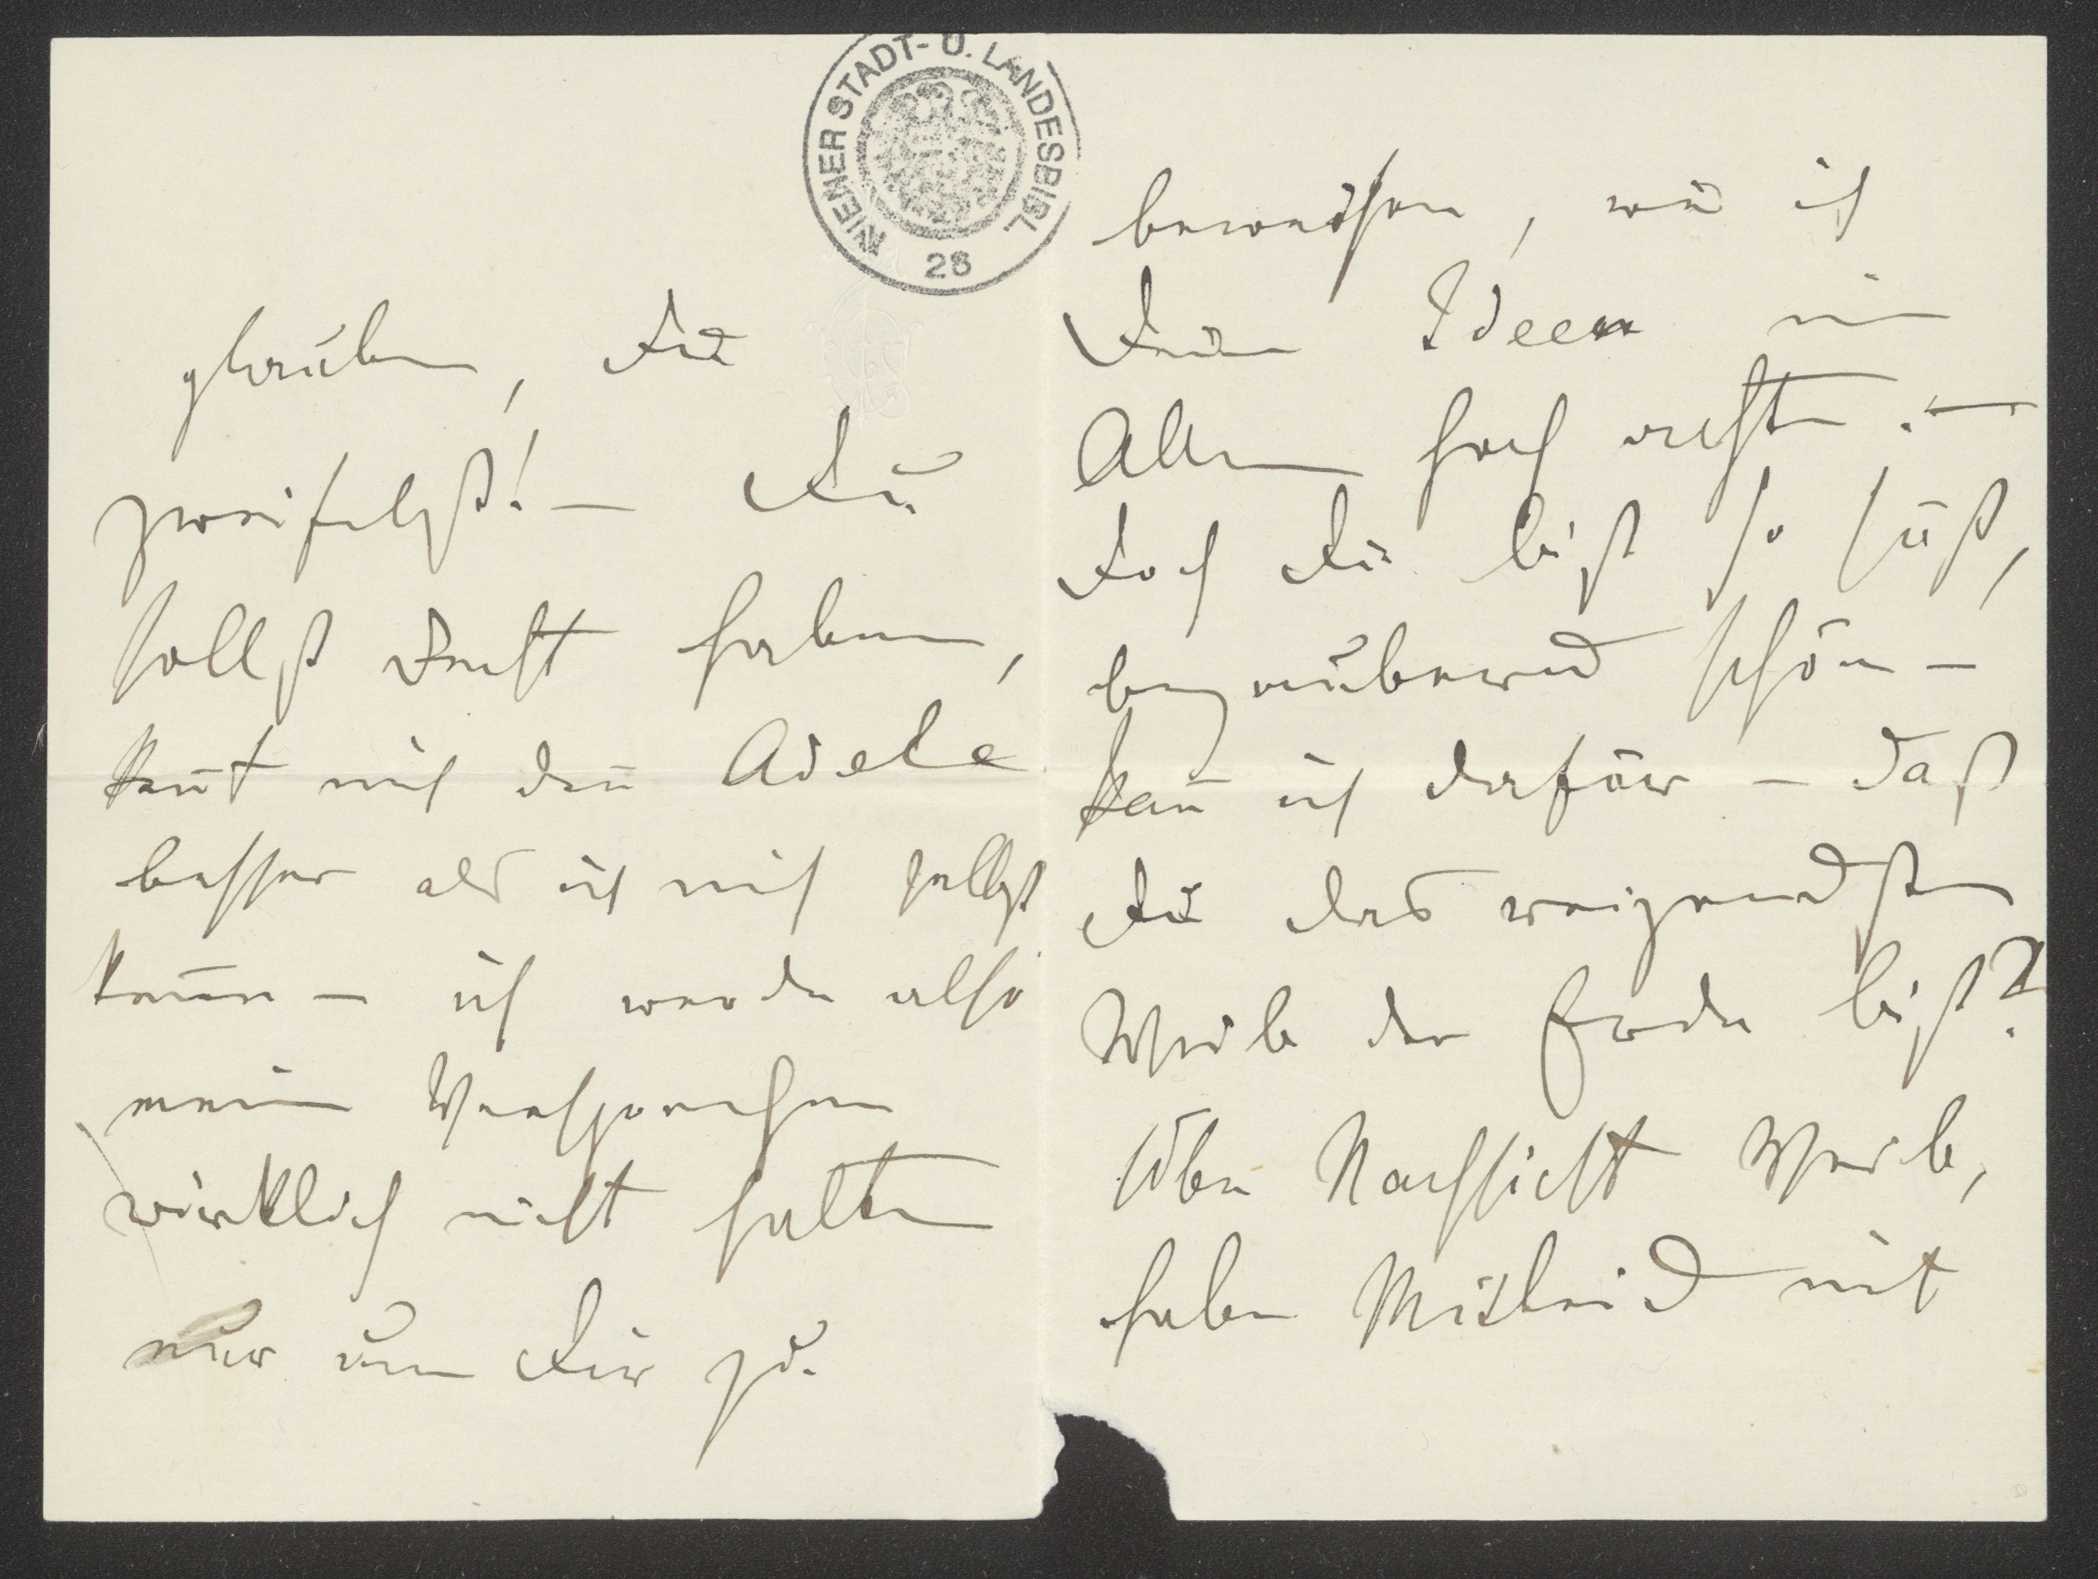 WIENER STADT- U. LANDESBIBL.
28
glauben, Du
zweifelst! — Du
sollst Recht haben,
kent mich den Adele
besser als ich mich selbst
kenne — ich werde also
mein Versprechen
wirklich nicht halten
nur um Dir zu
beweisen, wie ich
Deine Ideen in
Allem hoch achte. —
Doch Du bist so süß,
bezaubernd schön —
kan̄ ich dafür — daß
Du das reizendste
Weib der Erde bist?
Übe Nachsicht Weib,
habe Mitleid mit